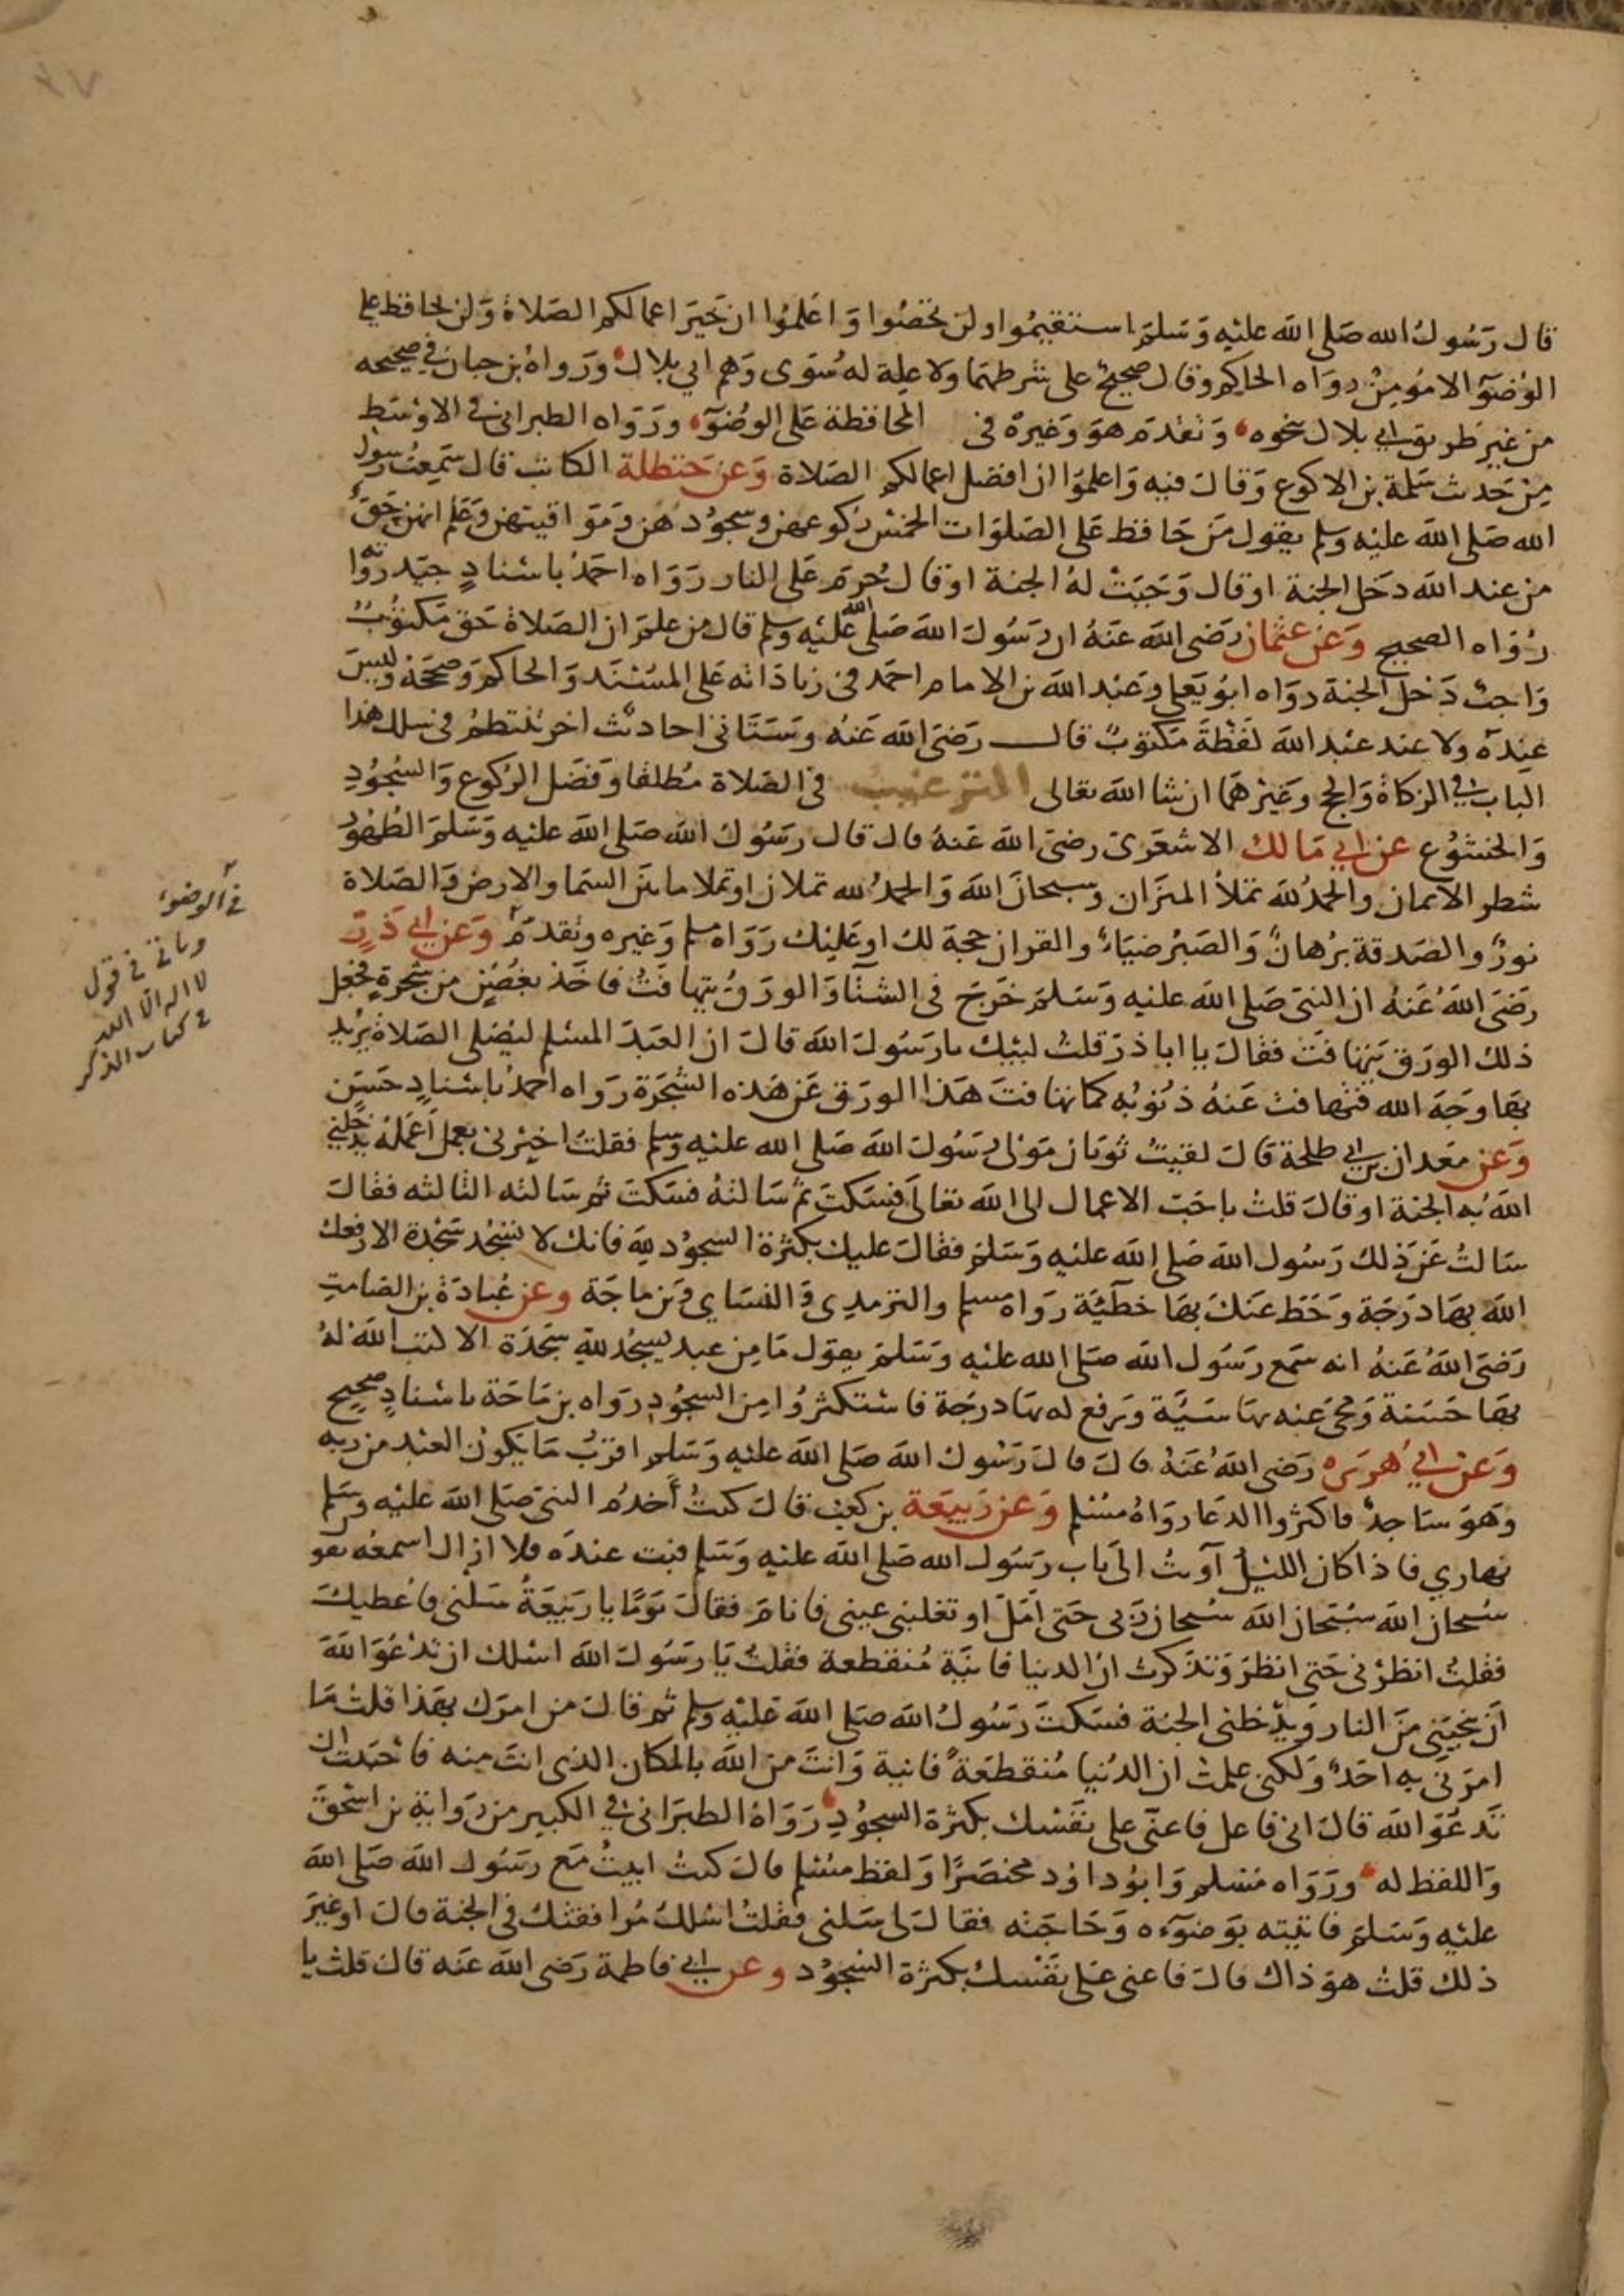 قال رسول الله صلى الله عليه وسلم استقيموا ولن تحصوا واعلموا ان خير اعمالكم الصلاة ولن يحافظ على
الوضوء الا مؤمن رواه الحاكم وقال صحيح على شرطهما ولا علة له سوى وهم ابي بلال ورواه بن حبان في صحيحه
من غير طريق ابي بلال نحوه وتقدم هو وغيره في المحافظة على الوضوء ورواه الطبراني في الاوسط
من حديث سلمة بن الاكوع وقال فيه واعلموا ان افضل اعمالكم الصلاة وعن حنظلة الكاتب قال سمعت رسول
الله صلى الله عليه وسلم يقول من حافظ على الصلوات الخمس ركوعهن وسجودهن ومواقيتهن وعلم انهن حق
من عند الله دخل الجنة او قال وجبت له الجنة او قال حرم على النار رواه احمد باسناد جيد رواته
رواه الصحيح وعن عثمان رضى الله عنه ان رسول الله صلى الله عليه وسلم قال من علم ان الصلاة حق مكتوب
واجب دخل الجنة رواه ابو يعلى وعبد الله بن الامام احمد في زياداته على المسند والحاكم وصححه وليس
عنده ولا عند عبد الله لفظة مكتوب قال رضى الله عنه وستاتي احاديث اخر تنتظم في سلك هذا
الباب في الزكاة والحج وغيرهما ان شا الله تعالى الترغيب في الصلاة مطلقا وفضل الركوع والسجود
والخشوع عن ابي مالك الاشعرى رضى الله عنه قال قال رسول الله صلى الله عليه وسلم الطهور
شطر الايمان والحمد لله تملأ الميزان وسبحان الله والحمد لله تملان او تملا ما بين السما والارض والصلاة
نور والصدقة برهان والصبر ضياء والقران حجة لك او عليك رواه مسلم وغيره وتقدم وعن ابي ذر
رضى الله عنه ان النبى صلى الله عليه وسلم خرج في الشتا والورق يتهافت فاخذ بغصن من شجرة فجعل
ذلك الورق يتهافت فقال يا ابا ذر قلت لبيك يا رسول الله قال ان العبد المسلم ليصلى الصلاة يريد
بها وجه الله فتهافت عنه ذنوبه كما تهافت هذا الورق عن هذه الشجرة رواه احمد باسناد حسن
وعن معدان بن ابي طلحة قال لقيت ثوبان مولى رسول الله صلى الله عليه وسلم فقلت اخبرنى بعمل أعمله يدخلني
الله به الجنة او قال قلت باحب الاعمال الى الله تعالى فسكت ثم سالته فسكت ثم سالته الثالثه فقال
سالت عن ذلك رسول الله صلى الله عليه وسلم فقال عليك بكثرة السجود لله فانك لا تسجد سجدة الا رفعك
الله بها درجة وحط عنك بها خطئية رواه مسلم والترمدى والنساي وبن ماجة وعن عبادة بن الصامت
رضى الله عنه انه سمع رسول الله صلى الله عليه وسلم يقول ما من عبد يسجد لله سجدة الا كتب الله له
بها حسنة ومحى عنه بها سيئة ورفع له بها درجة فاستكثروا من السجود رواه بن ماجة باسناد صحيح
وعن ابي هريره رضى الله عنه قال قال رسول الله صلى الله عليه وسلم اقرب ما يكون العبد من ربه
وهو ساجد فاكثروا الدعا رواه مسلم وعن ربيعة بن كعب قال كنت أخدم النبى صلى الله عليه وسلم
نهاري فاذا كان الليل آويت الى باب رسول الله صلى الله عليه وسلم فبت عنده فلا ازال اسمعه يقو
سبحان الله سبحان الله سبحان ربى حتى امل او تغلبنى عينى فانام فقال يوما يا ربيعة سلنى فاعطيك
فقلت انظرنى حتى انظر وتذكرت ان الدنيا فانية منقطعة فقلت يا رسول الله اسلك ان تدعو الله
ان ينجينى من النار ويدخلنى الجنة فسكت رسول الله صلى الله عليه وسلم ثم قال من امرك بهذا قلت ما
امرنى به احد ولكنى علمت ان الدنيا منقطعة فانية وانت من الله بالمكان الذى انت منه فاحببت ان
تدعو الله قال انى فاعل فاعنى على نفسك بكثرة السجود رواه الطبرانى في الكبير من رواية بن اسحق
واللفظ له ورواه مسلم وابو داود مختصرا ولفظ مسلم قال كنت ابيت مع رسول الله صلى الله
عليه وسلم فاتيته بوضوءه وحاجته فقال لى سلنى فقلت اسلك مرافقتك في الجنة قال او غير
ذلك قلت هو ذاك قال فاعنى على نفسك بكثرة السجود وعن ابي فاطمة رضى الله عنه قال قلت يا
في الوضوء
وياتي في قول
لا اله الا الله
في كتاب الذكر